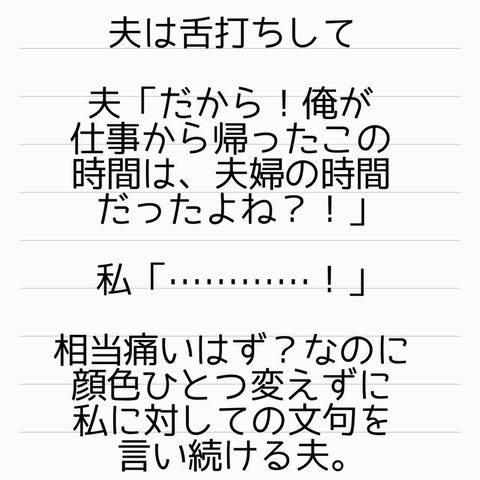 夫は舌打ちして
夫「だから！俺が
仕事から帰ったこの
時間は、夫婦の時間
だったよね？！」
私「…………！」
相当痛いはず？なのに
顔色ひとつ変えずに
私に対しての文句を
言い続ける夫。